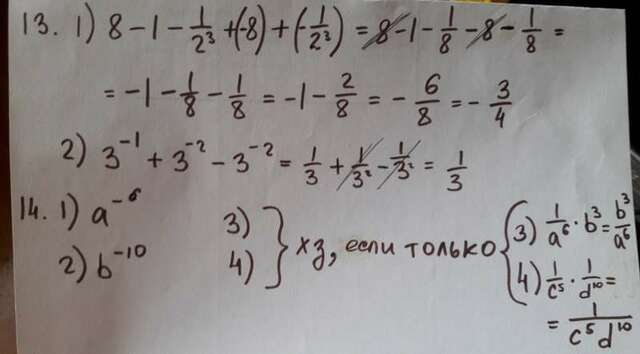 13. 1) 8 - 1 - 1/2³ + (-8) + (-1/2³) = 8 - 1 - 1/8 - 8 - 1/8 =
= -1 - 1/8 - 1/8 = -1 - 2/8 = - 6/8 = - 3/4
2) 3⁻¹ + 3⁻² - 3⁻² = 1/3 + 1/3² - 1/3² = 1/3
14. 1) a⁻⁶
2) b⁻¹⁰
3)
4) } хз, если только {
3) 1/a⁶ · b³ = b³/a⁶
4) 1/c⁵ · 1/d¹⁰ =
= 1/c⁵d¹⁰